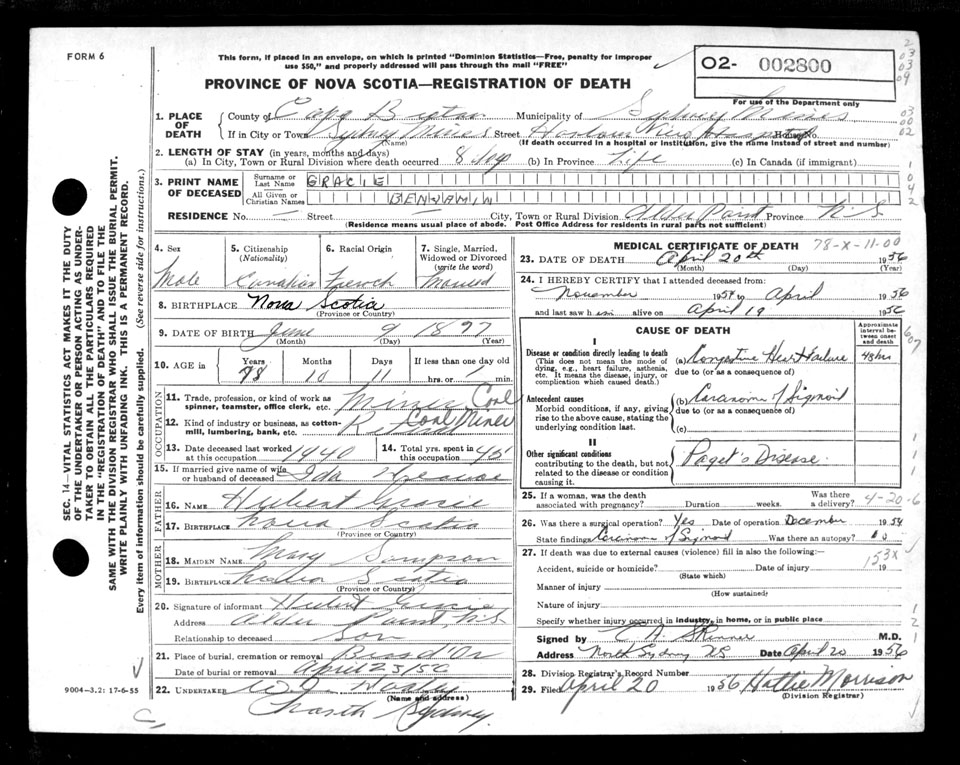 FORM 6
This form, if placed in an envelope, on which is printed "Dominion Statistics—Free, penalty for improper
use $50," and properly addressed will pass through the mail "FREE"
PROVINCE OF NOVA SCOTIA—REGISTRATION OF DEATH
02- 002800
For use of the Department only
1. PLACE OF DEATH
County of Cape Breton Municipality of Sydney Mines
If in City or Town Sydney Mines Street Harbour View Hospital House No.
(Name) (If death occurred in a hospital or institution, give the name instead of street and number)
2. LENGTH OF STAY (in years, months and days)
(a) In City, Town or Rural Division where death occurred 8 days (b) In Province Life (c) In Canada (if immigrant)
3. PRINT NAME OF DECEASED
Surname or Last Name GRACIE
All Given or Christian Names BENJAMIN
RESIDENCE No. — Street — City, Town or Rural Division Alder Point Province N-S
(Residence means usual place of abode. Post Office Address for residents in rural parts not sufficient)
4. Sex
Male
5. Citizenship
(Nationality)
Canadian
6. Racial Origin
French
7. Single, Married, Widowed or Divorced
(write the word)
Married
8. BIRTHPLACE Nova Scotia
(Province or Country)
9. DATE OF BIRTH June 9 1877
(Month) (Day) (Year)
10. AGE in
Years Months Days If less than one day old
78 10 11 hrs. or min.
OCCUPATION
11. Trade, profession, or kind of work as
spinner, teamster, office clerk, etc. Miner Coal
12. Kind of industry or business, as cotton-
mill, lumbering, bank, etc. Retired Coal Miner
13. Date deceased last worked
at this occupation 1940
14. Total yrs. spent in
this occupation 45
15. If married give name of wife
or husband of deceased Ida Gracie
FATHER
16. NAME Hubert Gracie
17. BIRTHPLACE Nova Scotia
(Province or Country)
MOTHER
18. MAIDEN NAME Mary Sampson
19. BIRTHPLACE Nova Scotia
(Province or Country)
20. Signature of informant Hubert Gracie
Address Alder Point N-S
Relationship to deceased Son
21. Place of burial, cremation or removal Bras d'Or
Date of burial or removal April 23/56
22. UNDERTAKER
(Name and address)
North Sydney.
MEDICAL CERTIFICATE OF DEATH 78-X-11-00
23. DATE OF DEATH April 20th 1956
(Month) (Day) (Year)
24. I HEREBY CERTIFY that I attended deceased from:
November 1954 to April 1956
and last saw him alive on April 19 1956
CAUSE OF DEATH
Approximate interval between onset and death
I
Disease or condition directly leading to death
(This does not mean the mode of
dying, e.g., heart failure, asthenia,
etc. It means the disease, injury, or
complication which caused death.)
(a) Congestive Heart Failure 48 hrs
due to (or as a consequence of)
Antecedent causes
Morbid conditions, if any, giving
rise to the above cause, stating the
underlying condition last.
(b) Carcinoma of Sigmoid
due to (or as a consequence of)
(c)
II
Other significant conditions
contributing to the death, but not
related to the disease or condition
causing it.
Paget's Disease.
25. If a woman, was the death
associated with pregnancy? Duration weeks. Was there a delivery?
4-20-6
26. Was there a surgical operation? Yes Date of operation December 1954
State findings Carcinoma of Sigmoid Was there an autopsy? no
27. If death was due to external causes (violence) fill in also the following:— 153X
Accident, suicide or homicide? Date of injury 19
(State which)
Manner of injury
(How sustained)
Nature of injury
Specify whether injury occurred in industry, in home, or in public place
Signed by C A Skinner M.D.
Address North Sydney NS Date April 20 1956
28. Division Registrar's Record Number
29. Filed April 20 1956 Hattie Morrison
(Division Registrar)
SEC. 14—VITAL STATISTICS ACT MAKES IT THE DUTY
OF THE UNDERTAKER OR PERSON ACTING AS UNDER-
TAKER TO OBTAIN ALL THE PARTICULARS REQUIRED
IN THE "REGISTRATION OF DEATH" AND TO FILE THE
SAME WITH THE DIVISION REGISTRAR WHO SHALL ISSUE THE BURIAL PERMIT.
WRITE PLAINLY WITH UNFADING INK. THIS IS A PERMANENT RECORD.
Every item of information should be carefully supplied. (See reverse side for instructions.)
9004—3.2: 17-6-55